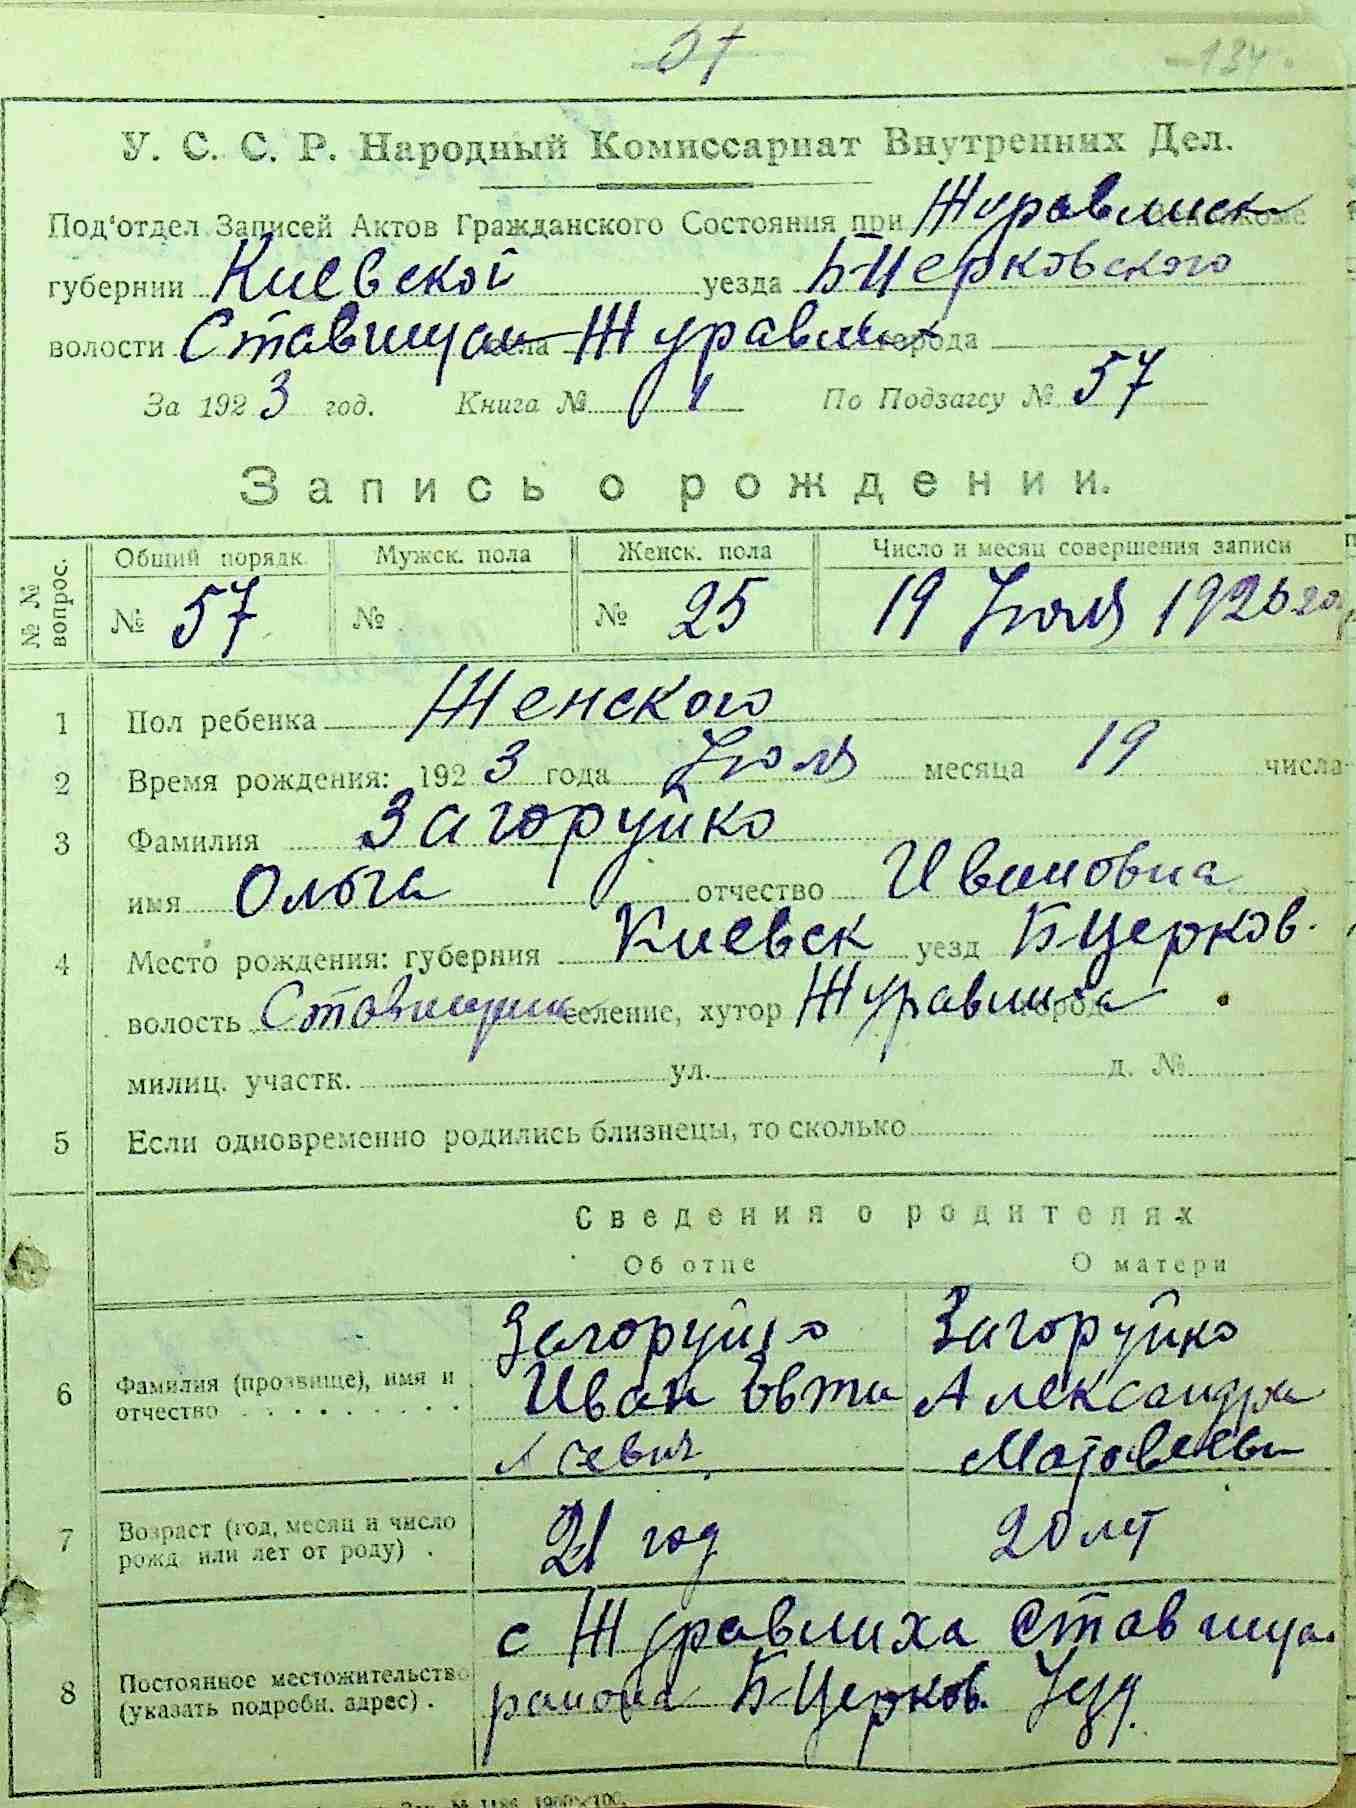 57
-134.
У. С. С. Р. Народный Комиссариат Внутренних Дел.
Под'отдел Записей Актов Гражданского Состояния при Журавлиск
губернии Киевской уезда БЦерковского
волости Ставищан села Журавлих города
За 1923 год. Книга № 1 По Подзагсу № 57
Запись о рождении.
№ № вопрос.
Общий порядк. Мужск. пола Женск. пола Число и месяц совершения записи
№ 57 № № 25 19 Июля 1923 год
1 Пол ребенка Женского
2 Время рождения: 1923 года Июля месяца 19 числа
3 Фамилия Загоруйко
имя Ольга отчество Ивановна
4 Место рождения: губерния Киевск уезд БЦерков.
волость Ставищан селение, хутор Журавлиха город
милиц. участк. ул. д. №
5 Если одновременно родились близнецы, то сколько
Сведения о родителях
Об отце О матери
Загоруйко Загоруйко
6 Фамилия (прозвище), имя и Иван Евти Александра
отчество
хиевич Матовеевн
7 Возраст (год, месяц и число 21 год 20 лет
рожд. или лет от роду) .
с Журавлиха Ставищан
8 Постоянное местожительство
(указать подробн. адрес) . района БЦерков. Уезд.
Зак. № 1186 1900×100.